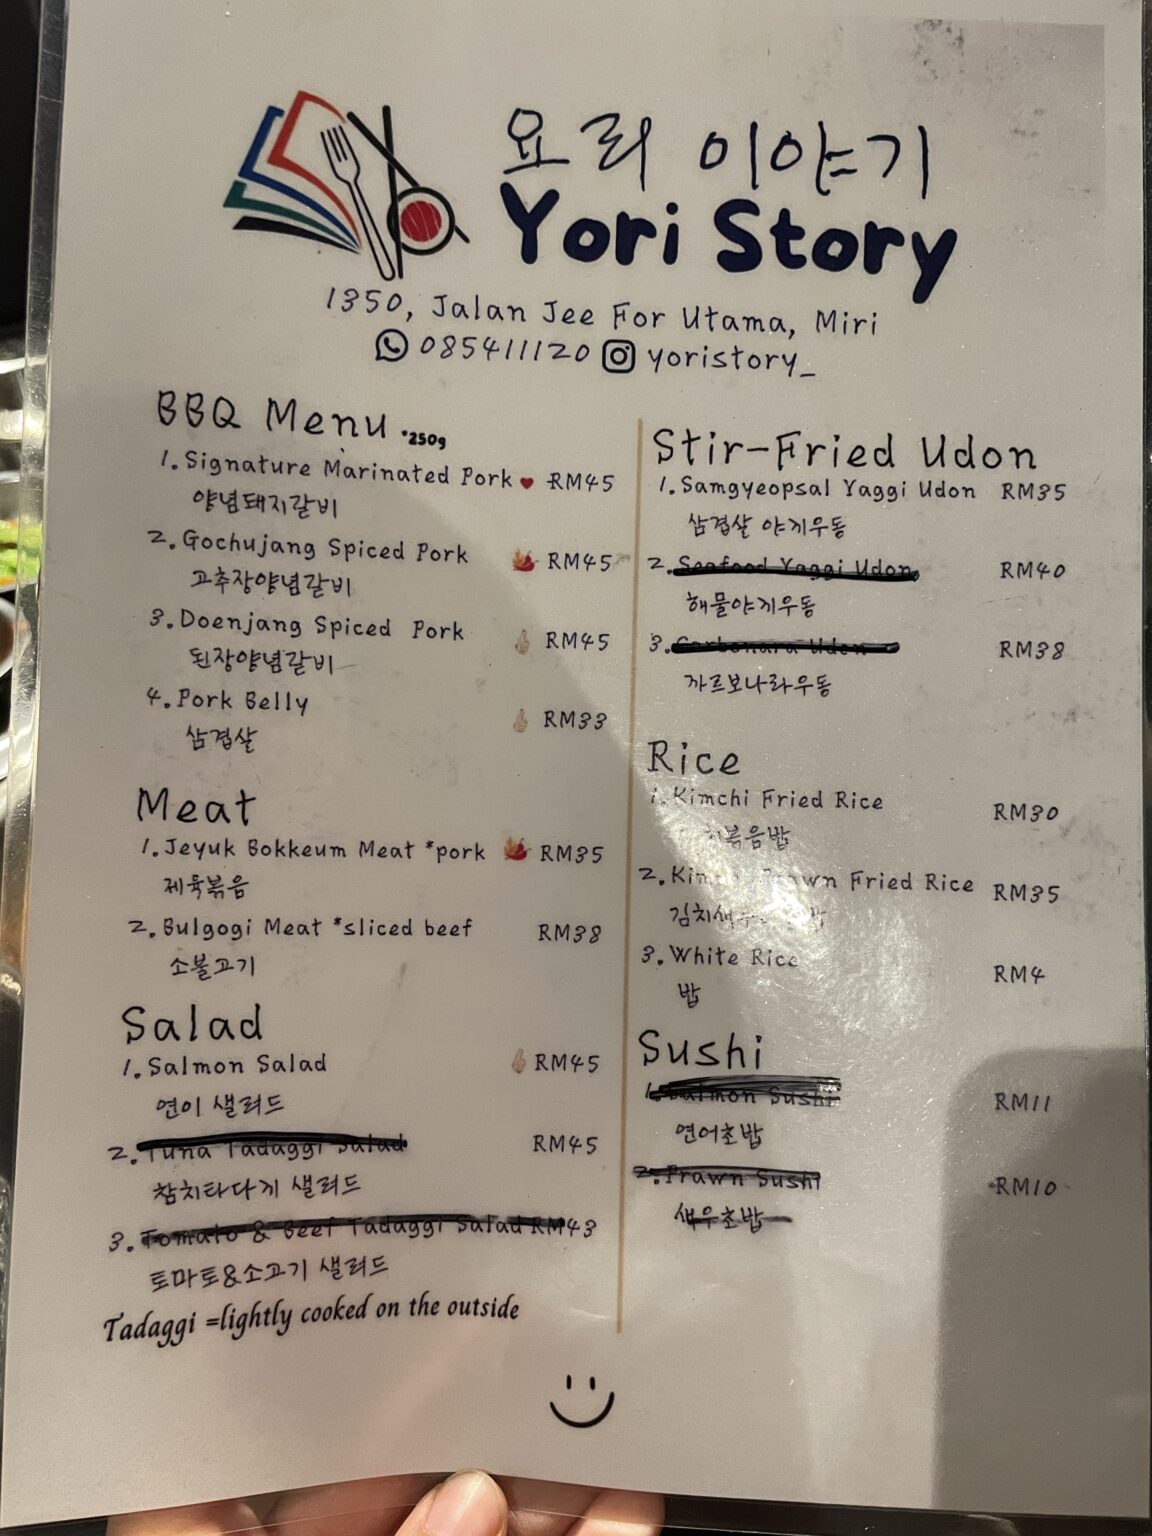 요리 이야기
Yori Story
1350, Jalan Jee For Utama, Miri
085411120 yoristory_
BBQ Menu *250g
1. Signature Marinated Pork RM45
양념돼지갈비
2. Gochujang Spiced Pork RM45
고추장양념갈비
3. Doenjang Spiced Pork RM45
된장양념갈비
4. Pork Belly RM33
삼겹살
Meat
1. Jeyuk Bokkeum Meat *pork RM35
제육볶음
2. Bulgogi Meat *sliced beef RM38
소불고기
Salad
1. Salmon Salad RM45
연이 샐러드
2. Tuna Tadaggi Salad RM45
참치타다끼 샐러드
3. Tomato & Beef Tadaggi Salad RM43
토마토&소고기 샐러드
Tadaggi =lightly cooked on the outside
Stir-Fried Udon
1. Samgyeopsal Yaggi Udon RM35
삼겹살 야끼우동
2. Seafood Yaggi Udon RM40
해물야끼우동
3. Carbonara Udon RM38
까르보나라우동
Rice
1. Kimchi Fried Rice RM30
치볶음밥
2. Prawn Fried Rice RM35
김치새
3. White Rice RM4
밥
Sushi
1. Salmon Sushi RM11
연어초밥
2. Prawn Sushi RM10
새우초밥